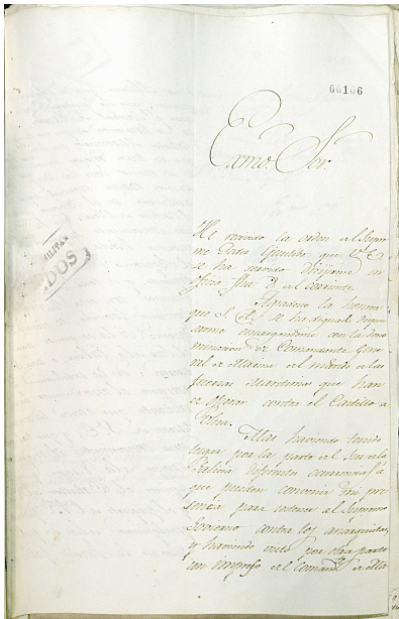 00106
Exmo. Sor.
He recivido la orden del Supre
mo Poder Ejecutivo que V.E.
se ha servido dirijirme en
oficio fha 3 del corriente.
Agradezco la honra
que S. A. S. se ha dignado dispen
sarme encargandome con la deno
minacion de Comandante Gene
ral de Marina el mando de las
fuerzas Maritimas que han
de operar contra el Castillo de
Ulua.
Mas haviendo tenido
lugar por la parte del
que pueden convenir mi pre
sencia para sostener al Supremo
Govierno contra los anarquistas,
y haviendo visto por otra parte
un impreso del Comandte de
MILITAR